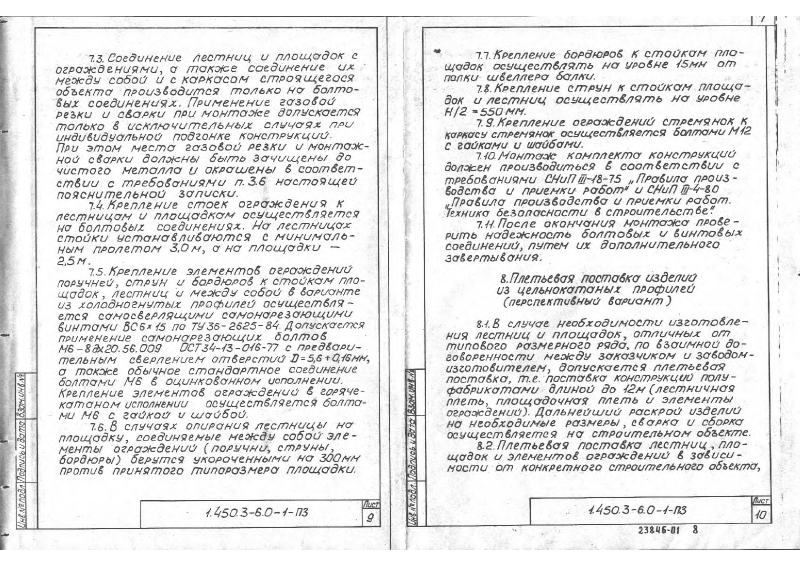 7.3. Соединение лестниц и площадок с
ограждениями, а также соединение их
между собой и с каркасом строящегося
объекта производится только на болто-
вых соединениях. Применение газовой
резки и сварки при монтаже допускается
только в исключительных случаях при
индивидуальной подгонке конструкций.
При этом места газовой резки и монтаж-
ной сварки должны быть зачищены до
чистого металла и окрашены в соответ-
ствии с требованиями п.3.6 настоящей
пояснительной записки.
7.4. Крепление стоек ограждения к
лестницам и площадкам осуществляется
на болтовых соединениях. На лестницах
стойки устанавливаются с минималь-
ным пролетом 3,0 м, а на площадки –
2,5 м.
7.5. Крепление элементов ограждений
поручней, струн и бордюров к стойкам пло-
щадок, лестниц и между собой в варианте
из холодногнутых профилей осуществля-
ется самосверлящими самонарезающими
винтами ВС6×15 по ТУ 36-2625-84. Допускается
применение самонарезающих болтов
М6-8дх20.56.009 ОСТ34-13-016-77 с предвари-
тельным сверлением отверстий D=5,6+0,16мм,
а также обычное стандартное соединение
болтами М6 в оцинкованном исполнении.
Крепление элементов ограждений в горяче-
катаном исполнении осуществляется болта-
ми М6 с гайкой и шайбой.
7.6. В случаях опирания лестницы на
площадку, соединяемые между собой эле-
менты ограждений (поручни, струны,
бордюры) берутся укороченными на 300мм
против принятого типоразмера площадки.
Инв.№ подл. Подпись и дата Взам.инв.№
1.450.3-6.0-1-ПЗ
Лист
9
7.7. Крепление бордюров к стойкам пло-
щадок осуществлять на уровне 15мм от
полки швеллера балки.
7.8. Крепление струн к стойкам площа-
док и лестниц осуществлять на уровне
Н/2 = 550 мм.
7.9. Крепление ограждений стремянок к
каркасу стремянок осуществляется болтами М12
с гайками и шайбами.
7.10. Монтаж комплекта конструкций
должен производиться в соответствии с
требованиями СНиП III-18-75 „Правила произ-
водства и приемки работ" и СНиП III-4-80
„Правила производства и приемки работ.
Техника безопасности в строительстве".
7.11. После окончания монтажа прове-
рить надежность болтовых и винтовых
соединений, путем их дополнительного
завертывания.
8. Плетьевая поставка изделий
из цельнокатаных профилей
(перспективный вариант)
8.1. В случае необходимости изготовле-
ния лестниц и площадок, отличных от
типового размерного ряда, по взаимной до-
говоренности между заказчиком и заводом-
изготовителем, допускается плетьевая
поставка, т.е. поставка конструкций полу-
фабрикатами длиной до 12м (лестничная
плеть, площадочная плеть и элементы
ограждений). Дальнейший раскрой изделий
на необходимые размеры, сварка и сборка
осуществляется на строительном объекте.
8.2. Плетьевая поставка лестниц, пло-
щадок и элементов ограждений в зависи-
ности от конкретного строительного объекта,
Инв.№ подл. Подпись и дата Взам.инв.№
1.450.3-6.0-1-ПЗ
Лист
10
23846-01 8